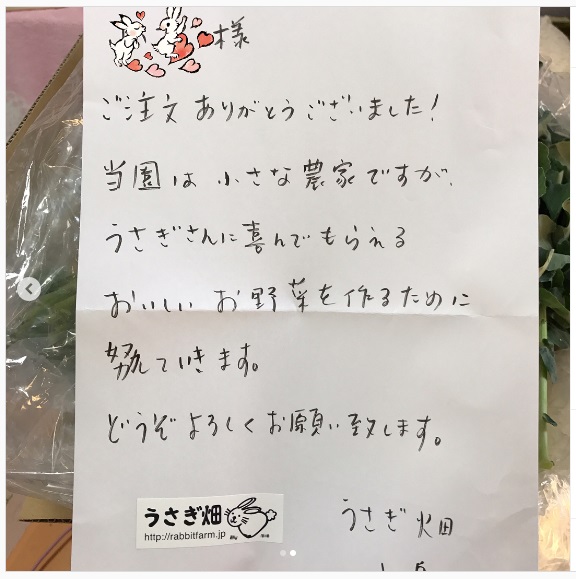 様
ご注文ありがとうございました!
当園は小さな農家ですが、
うさぎさんに喜んでもらえる
おいしいお野菜を作るために
努めていきます。
どうぞよろしくお願い致します。
うさぎ畑
http://rabbitfarm.jp
うさぎ畑